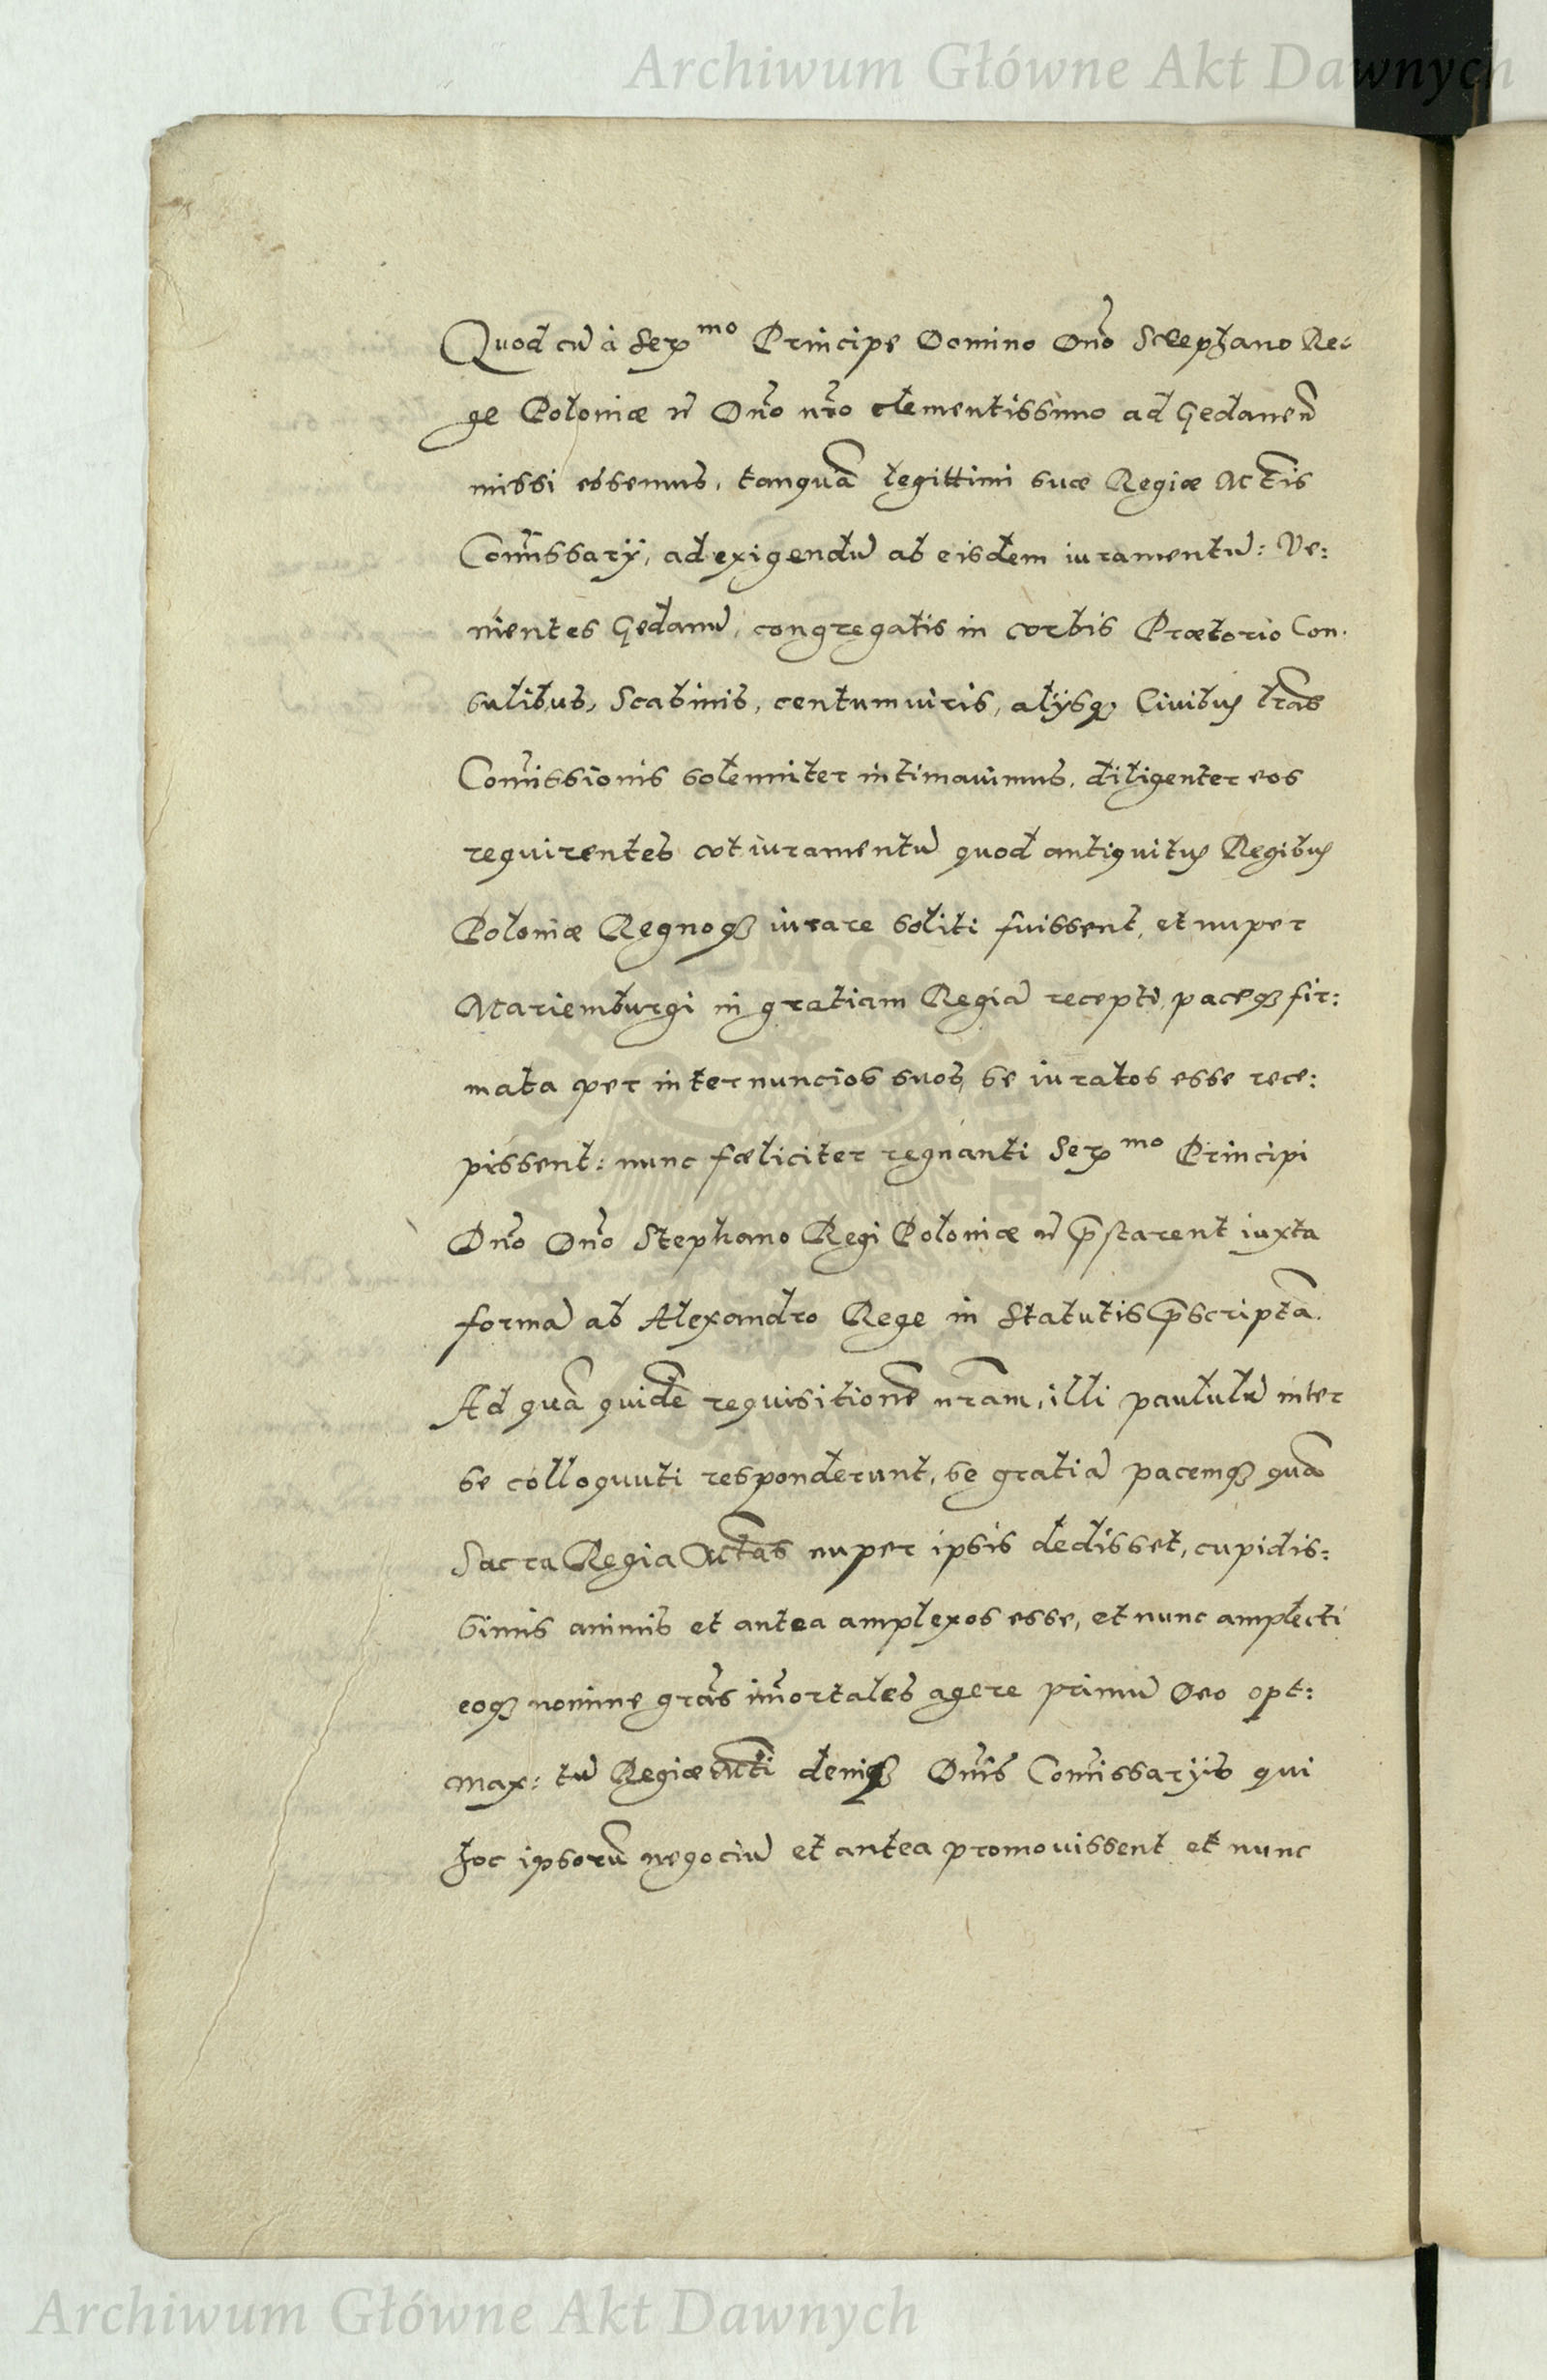 Archiwum Główne Akt Dawnych
Quod cũ à Ser^mo Principe Domino Dño Stephano Re:
ge Poloniæ ẽ Dño ñro clementissimo ad Gedaneñ
missi essemus, tanquã legittimi suæ Regiæ Mtis
Com̃issarij, ad exigendũ ab eisdem iuramentũ: Ve:
nientes Gedanũ, congregatis in vrbis Prætorio Con.
sulibus, Scabinis, centumuiris, alijsq; Ciuibus lr̃as
Com̃issionis solenniter intimauimus, diligenter eos
requirentes vt iuramentũ quod antiquitus Regibus
Poloniæ Regnoq; iurare soliti fuissent, et nuper
Mariemburgi in gratiam Regiã recepti, paceq; fir:
mata per internuncios suos, se iuratos esse rece:
pissent: nunc fœliciter regnanti Ser^mo Principi
Dño Dño Stephano Regi Poloniæ ẽ p̃starent iuxta
formã ab Alexandro Rege in Statutis p̃scriptã.
Ad quã quidẽ requisitionẽ nr̃am, illi paululũ inter
se colloquuti responderunt, se gratiã pacemq; quã
Sacra Regia Mtas nuper ipsis dedisset, cupidis:
simis animis et antea amplexos esse, et nunc amplecti
eoq; nomine grãs im̃ortales agere primũ Deo opt:
max: tũ Regiæ Mti deniq; Dñis Com̃issarijs qui
hoc ipsorũ negociũ et antea promouissent et nunc
Archiwum Główne Akt Dawnych